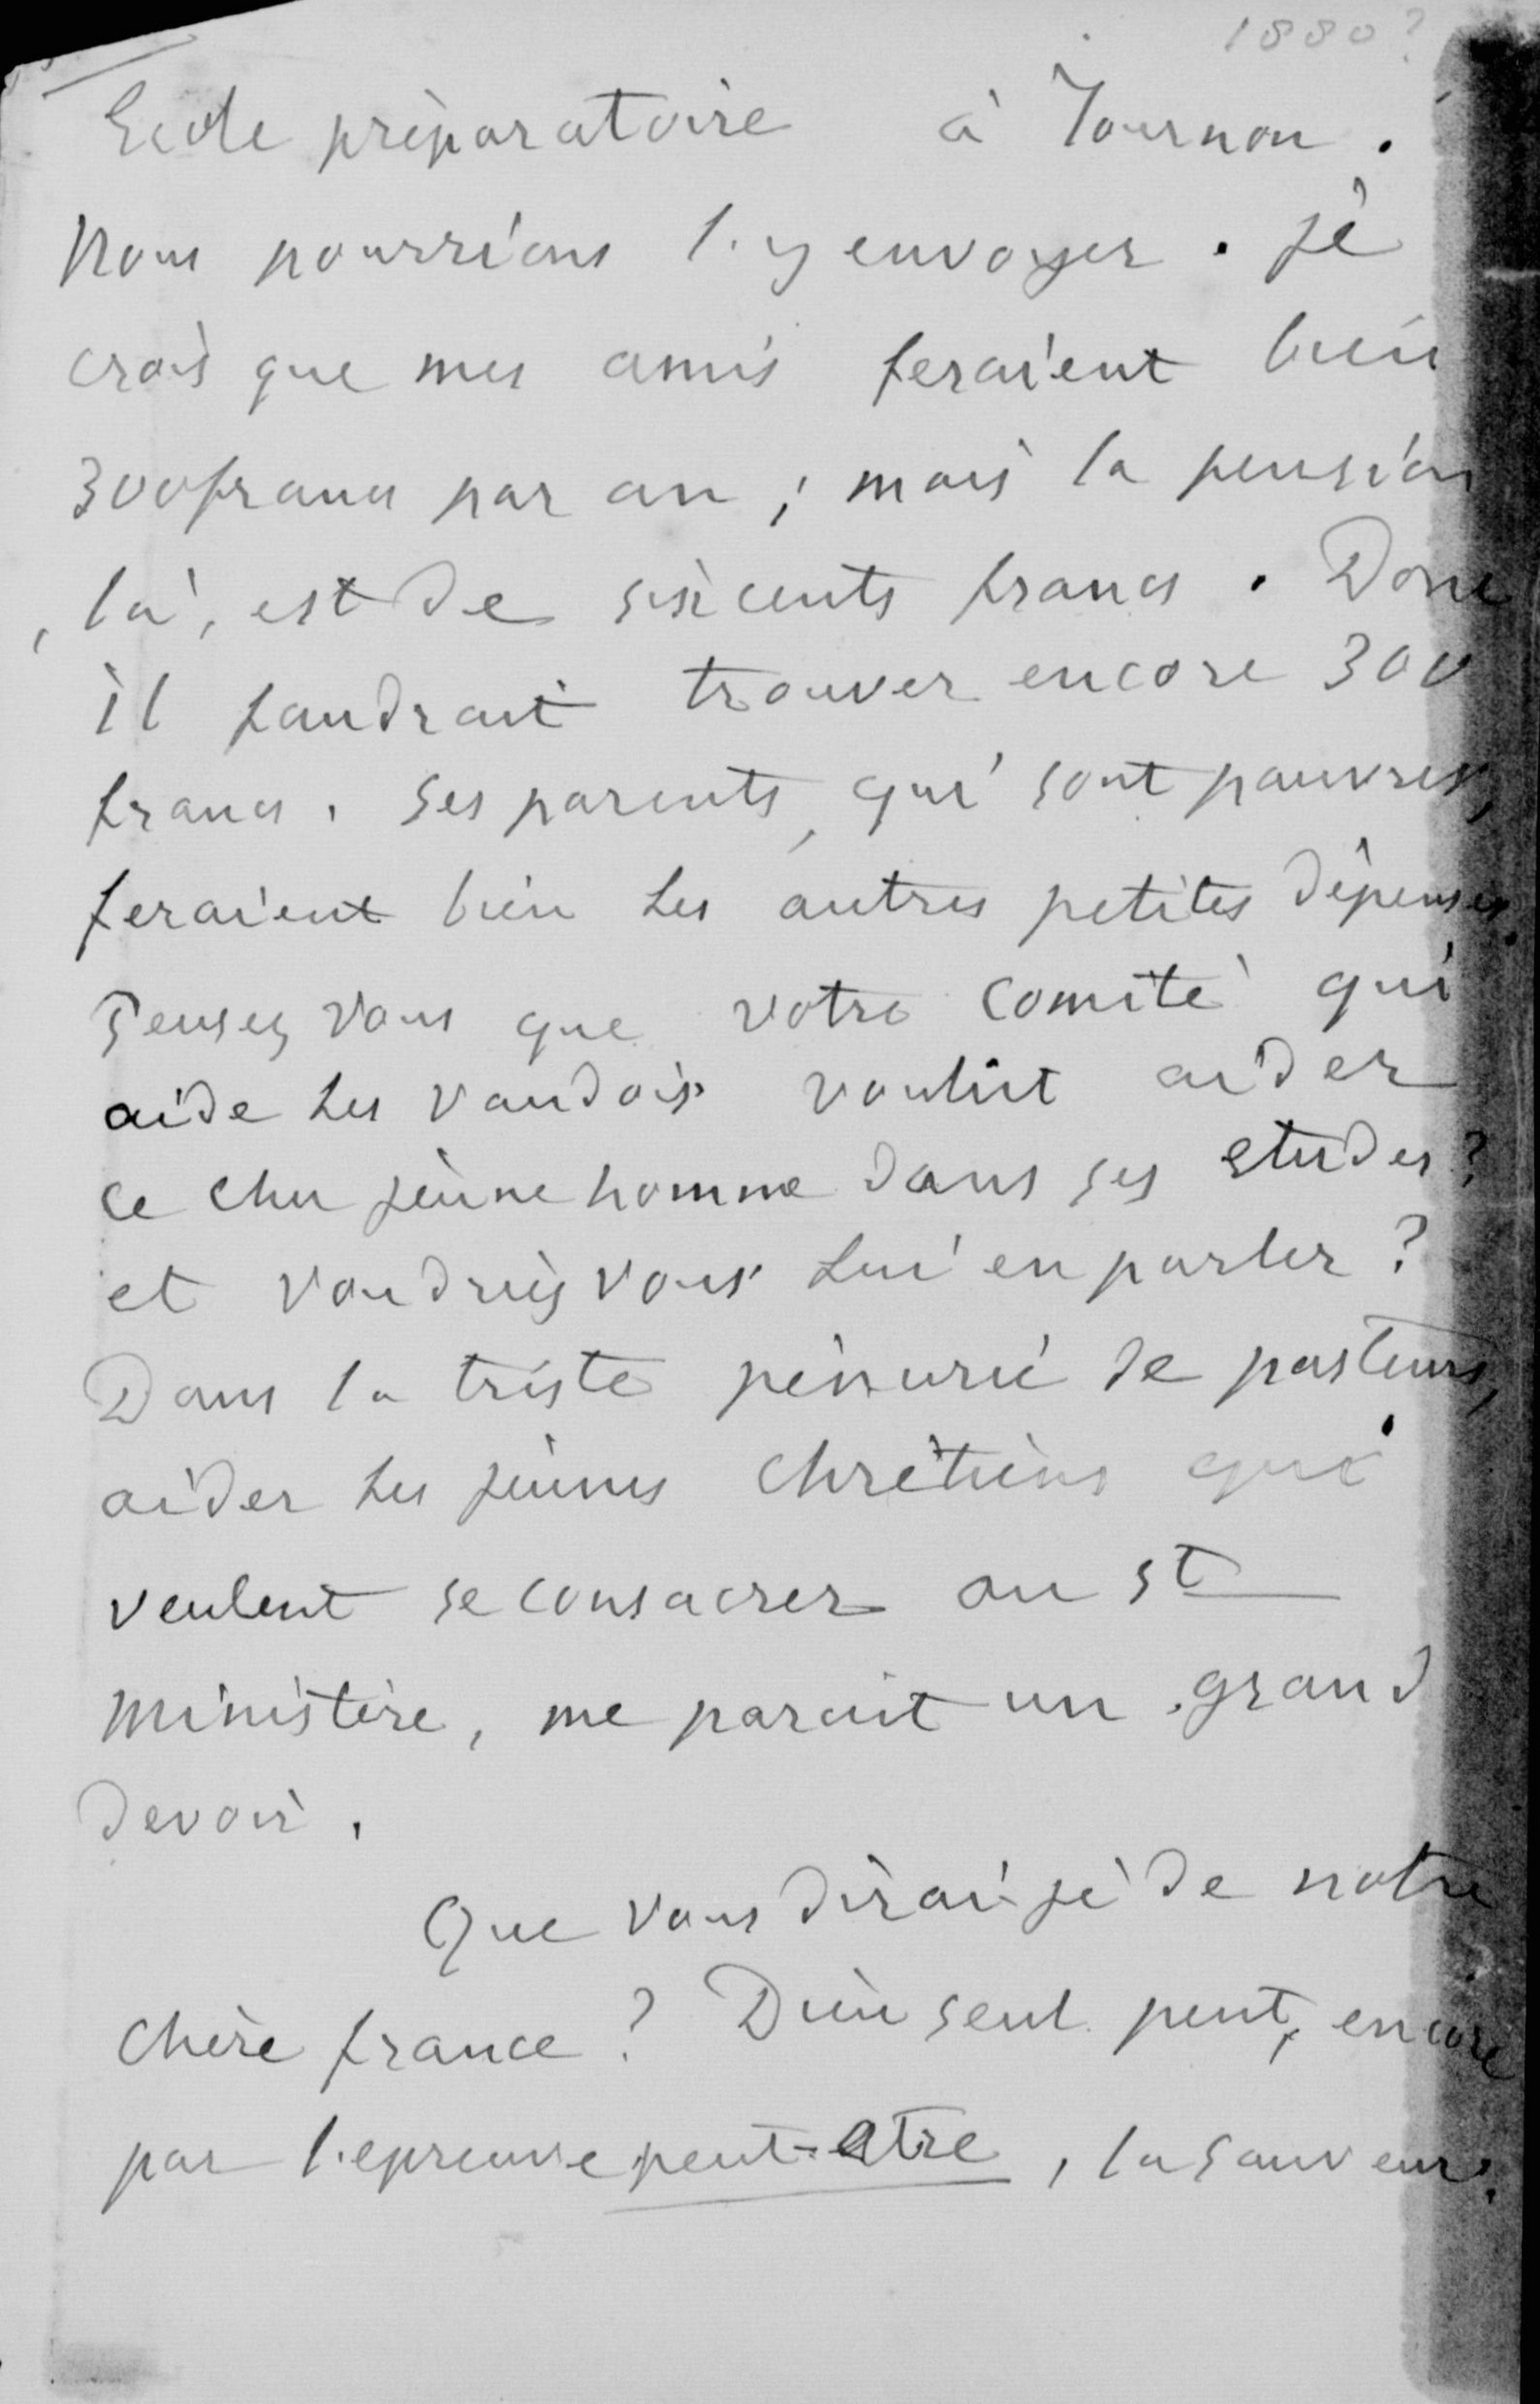 1880?
Ecole préparatoire à Tournon.
Nous pourrions l'y envoyer. je
crois que mes amis feraient bien
300 francs par an ; mais la pension
, là, est de six cents francs. Donc
il faudrait trouver encore 300
francs. Ses parents, qui sont pauvres,
feraient bien les autres petites dépenses.
Pensez vous que votre comité qui
aide les vaudois voulut aider
ce cher jeune homme dans ses etudes?
et voudriez vous lui en parler?
Dans la triste pénurie de pasteurs,
aider les jeunes chrétiens qui
veulent se consacrer au st
ministère, me parait un grand
devoir.
Que vous dirai-je de notre
chère france? Dieu seul peut, encore
par l'epreuve peut-etre, la sauver.